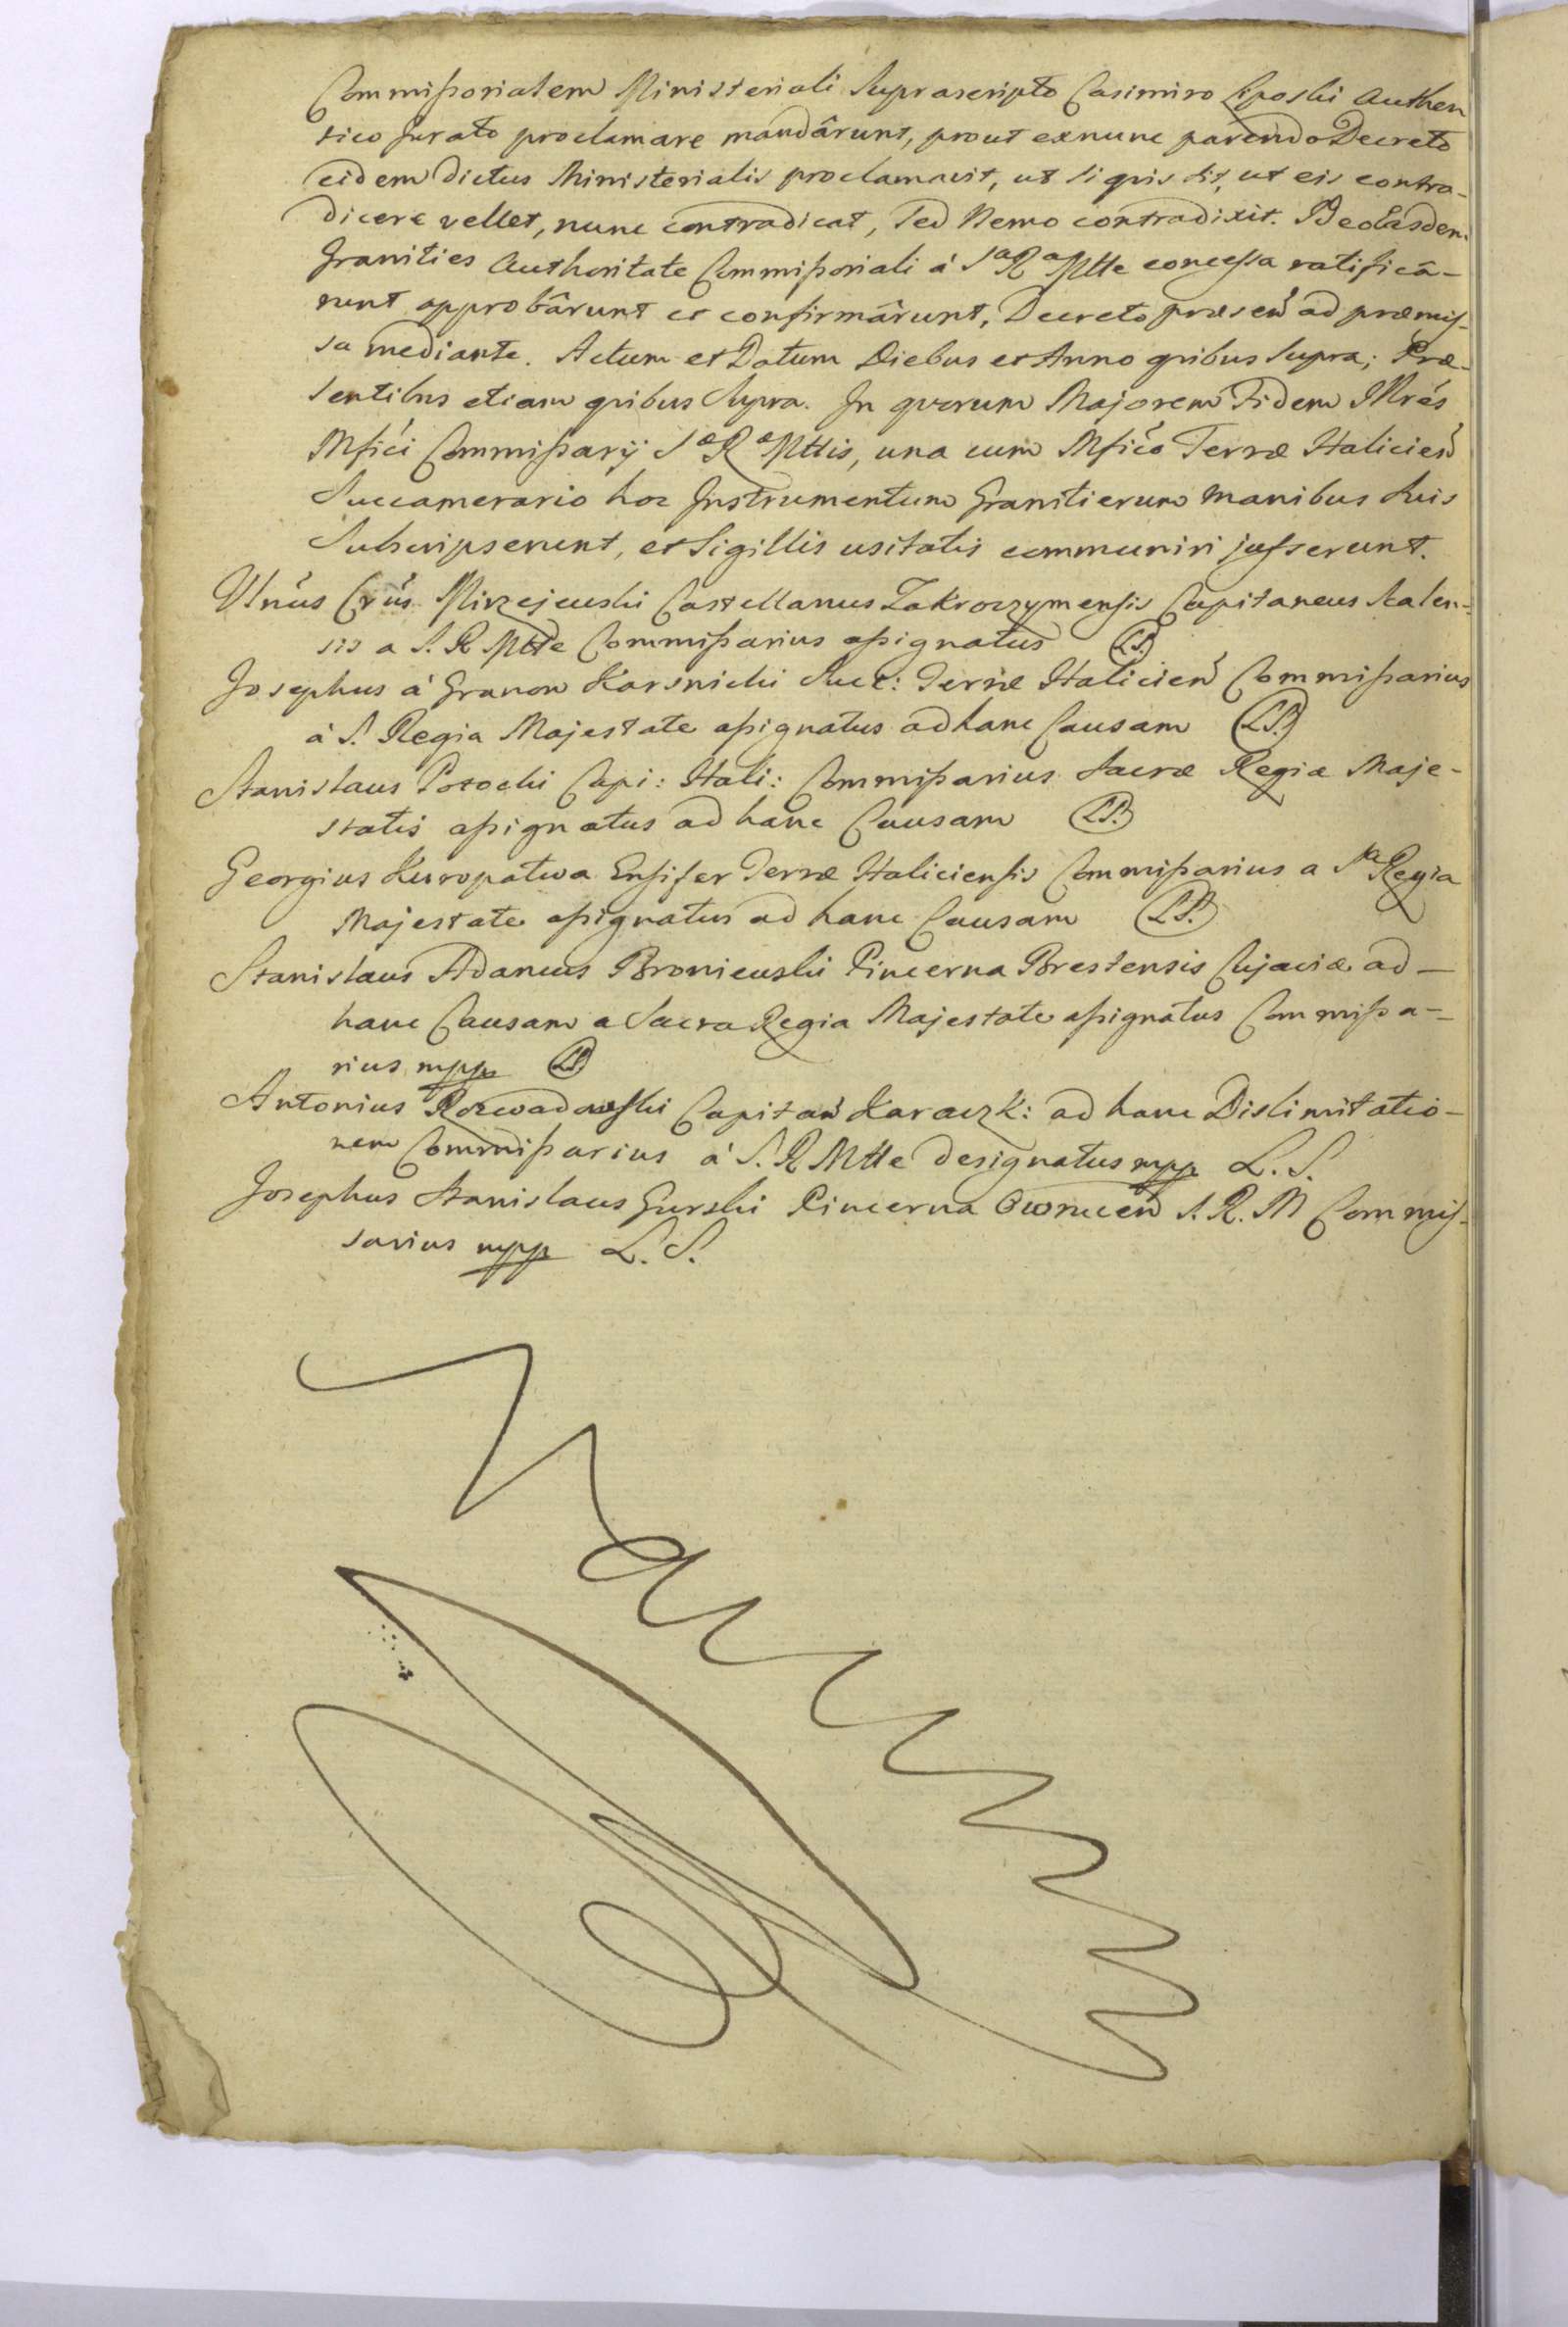 Commissorialem Ministeriali Suprascripto Casimiro Liposki Authen
tico Jurato proclamare mandârunt, prout exnunc parendo Decreto
eidem dictus Ministerialis proclamavit, ut si quis sit, ut eis contra-
dicere vellet, nunc contradicat, Sed Nemo contradixit. Ideo Easdem
Granities Authoritate Commissoriali á Sa Ra Mtte concessa ratificâ-
runt approbârunt et confirmârunt, Decreto præsen ad præmis-
sa mediante. Actum et Datum Diebus et Anno quibus Supra; Præ-
sentibus etiam quibus Supra. In quorum Majorem Fidem Illrés
Mfići Commissarij Sæ Ræ Mttis, una cum Mfićo Terræ Halicień
Succamerario hoc Instrumentum Granitierum manibus Suis
Subscripserunt, et Sigillis usitatis communiri jusserunt.
Mirzejewski Castellanus Zakroczymensis Capitaneus Stalen-
sis a S. R Mtte Commissarius assignatus L.S.
Josephus á Granow Karsnicki Succ: Terræ Halicień Commissarius
á S. Regia Majestate assignatus ad hanc Causam L.S.
Stanislaus Potocki Capi: Hali: Commissarius Sacræ Regiæ Maje-
statis assignatus ad hanc Causam L.S.
Georgius Kuropatwa Ensifer Terræ Haliciensis Commissarius a Sa Regia
Majestate assignatus ad hanc Causam L.S.
Stanislaus Adamus Broniewski Pincerna Brestensis Cujaviæ ad-
hanc Causam a Sacra Regia Majestate assignatus Commissa-
rius mpp L.S.
Antonius Rozwadowski Capitań Karaczk: ad hanc Dislimitatio-
nem Commissarius á S. R Mtte designatus mpp L. S.
Josephus Stanislaus Gurski Pincerna Owrucen S. R. M Commis-
sarius mpp L. S.